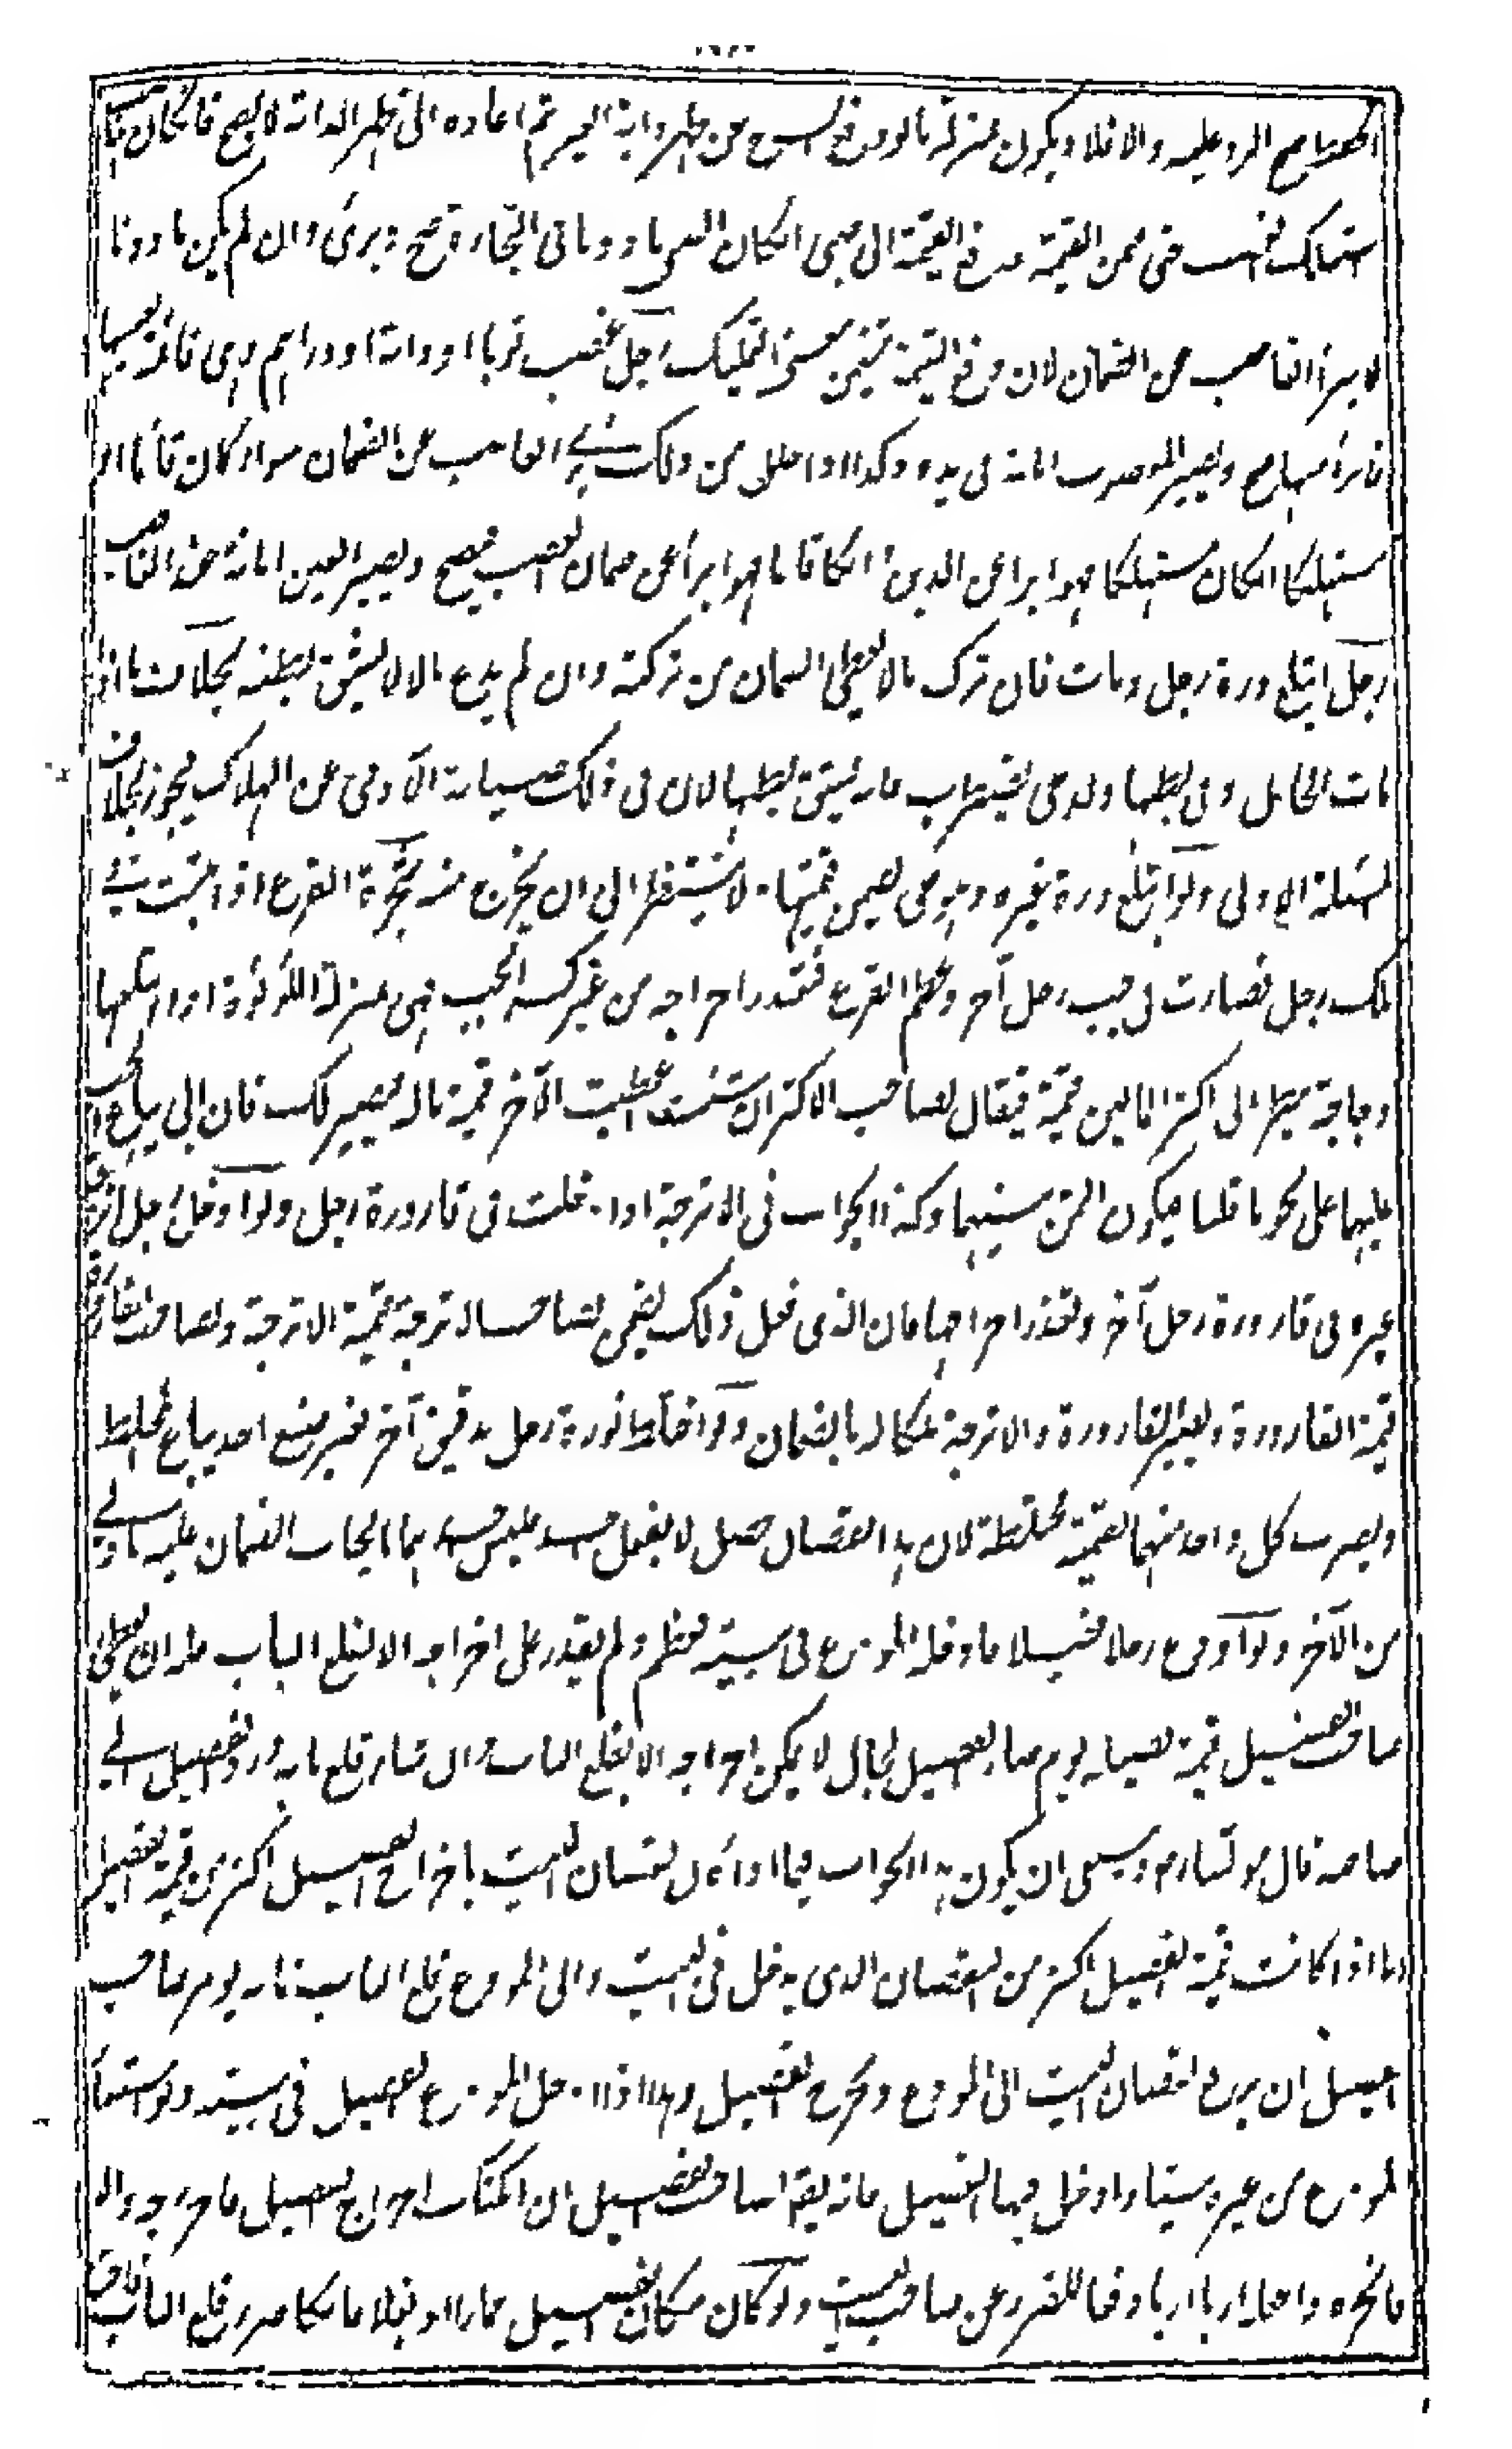 الحفظ صح الرد عليه والا فلا ويكون بمنزلة ما لو رفع السرج عن ظهر دابة الغير ثم اعاده الى ظهر الدابة لا يصح فان كان
استهلك الغصب حتى ضمن القيمة فدفع القيمة الى صبى ان كان الصبى ماذونا فى التجارة صح ويبرئ وان لم يكن ماذونا
لا يبرأ الغاصب عن الضمان لان دفع القيمة يتضمن معنى التمليك رجل غصب ثوبا او دابة او دراهم وهى قائمة بعينها
فابرأه منها صح ويصير المغصوب امانة فى يده وكذا اذا حلله من ذلك برئ الغاصب عن الضمان سواء كان قائما او
مستهلكا ان كان مستهلكا فهو ابراء عن الدين وان كان قائما فهو ابراء عن ضمان الغصب فيصح ويصير العين امانة عند الغاصب
رجل ابتلع درة رجل ومات فان ترك مالا يعطى الضمان من تركته وان لم يدع مالا لا يشق بطنه بخلاف ما اذا
مات الحامل وفى بطنها ولد حى يضطرب فانه يشق بطنها لان فى ذلك صيانة الآدمى عن الهلاك فيجوز بخلاف
المسئلة الاولى ولو ابتلع درة غيره وهو حى يضمن قيمتها لا ينتظر الى ان يخرج منه شجرة القرع اذا نبتت فى
ملك رجل فصارت فى جب رجل آخر وعظم القرع فتعذر اخراجه من غير كسر الجب فهى بمنزلة اللؤلؤة اذا ابتلعتها
دجاجة ينظر الى اكثر المالين قيمة فيقال لصاحب الاكثر ان شئت اعطيت الآخر قيمة ماله فيصير لك فان ابى يباع الجب
عليهما على نحو ما قلنا فيكون الثمن بينهما وكذا الجواب فى الاترجة اذا دخلت فى قارورة رجل ولو ادخل رجل اترجة
غيره فى قارورة رجل آخر وتعذر اخراجها فان الذى فعل ذلك يضمن لصاحب الاترجة قيمة الاترجة ولصاحب القارورة
قيمة القارورة ويصير القارورة والاترجة ملكا له بالضمان ولو اختلط نورة رجل بدقيق آخر بغير صنع احد يباع المختلط
ويضرب كل واحد منهما بقيمته مختلطة لان هذا النقصان حصل لا بفعل احد فليس احدهما بايجاب الضمان عليه باولى
من الآخر ولو اودع رجلا فصيلا فادخله المودع فى بيته فعظم ولم يقدر على اخراجه الا بقلع الباب فله ان يعطى
صاحب الفصيل قيمة فصيله يوم صار الفصيل بحال لا يمكن اخراجه الا بقلع الباب وان شاء قلع بابه ورد الفصيل الى
صاحبه قال مولانا رح وينبغى ان يكون هذا الجواب فيما اذا كان نقصان البيت باخراج الفصيل اكثر من قيمة الفصيل
اما اذا كانت قيمة الفصيل اكثر من النقصان الذى يدخل فى البيت وابى المودع قلع الباب فانه يؤمر صاحب
الفصيل ان يرد نقصان البيت الى المودع ويخرج الفصيل وهذا اذا ادخل المودع الفصيل فى بيته ولو استعار
المودع من غيره بيتا وادخل فيها الفصيل فانه يقال لصاحب الفصيل ان امكنك اخراج الفصيل فاخرجه والا
فانحره واجعله اربا اربا دفعا للضرر عن صاحب البيت ولو كان مكان الفصيل حمارا او بغلا فان كان ضرر قلع الباب فاحشا